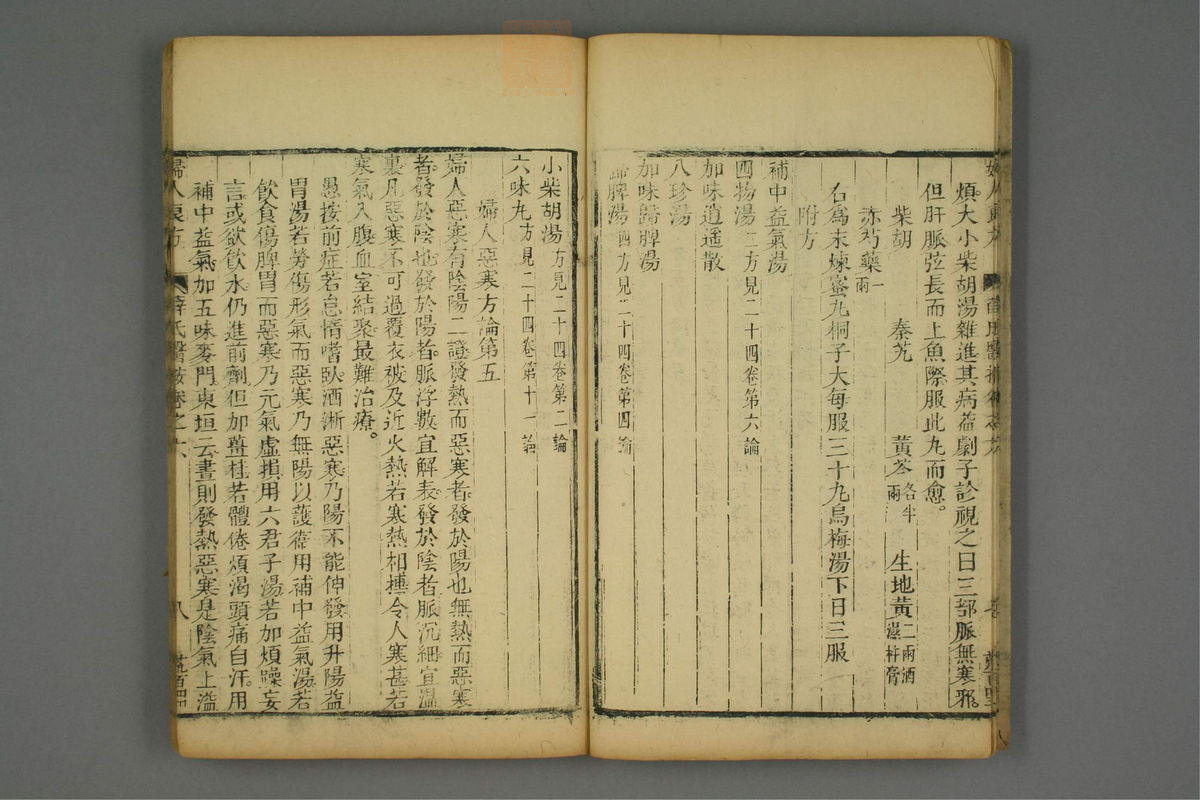 煩大小柴胡湯雜進其病益劇子診視之曰三部脈無寒邪
但肝脈弦長而上魚際服此丸而愈。
柴胡　秦艽　黃芩各半兩　生地黃二兩酒濕杵膏
赤芍藥一兩
右為末煉蜜丸桐子大每服三十丸烏梅湯下日三服
附方
補中益氣湯
四物湯二方見二十四卷第六論
加味逍遙散
八珍湯
加味歸脾湯
歸脾湯四方見二十四卷第四論
小柴胡湯方見二十四卷第二論
六味丸方見二十四卷第十一論
婦人惡寒方論第五
婦人惡寒有陰陽二證發熱而惡寒者發於陽也無熱而惡寒
者。發於陰也發於陽者。脈浮數宜解表發於陰者脈沉細宜溫
裏凡惡寒不可過覆衣被及近火熱若寒熱相搏令人寒甚若
寒氣入腹血室結聚最難治療。
愚按前症若怠惰嗜臥洒淅惡寒乃陽不能伸發用升陽益
胃湯若勞傷形氣而惡寒乃無陽以護衛用補中益氣湯若
飲食傷脾胃而惡寒乃元氣虛損用六君子湯若加煩躁妄
言或欲飲水仍進前劑但加薑桂若體倦煩渴頭痛自汗。用
補中益氣加五味麥門東垣云晝則發熱惡寒是陰氣上溢
婦人良方　薛氏醫按卷之六　八